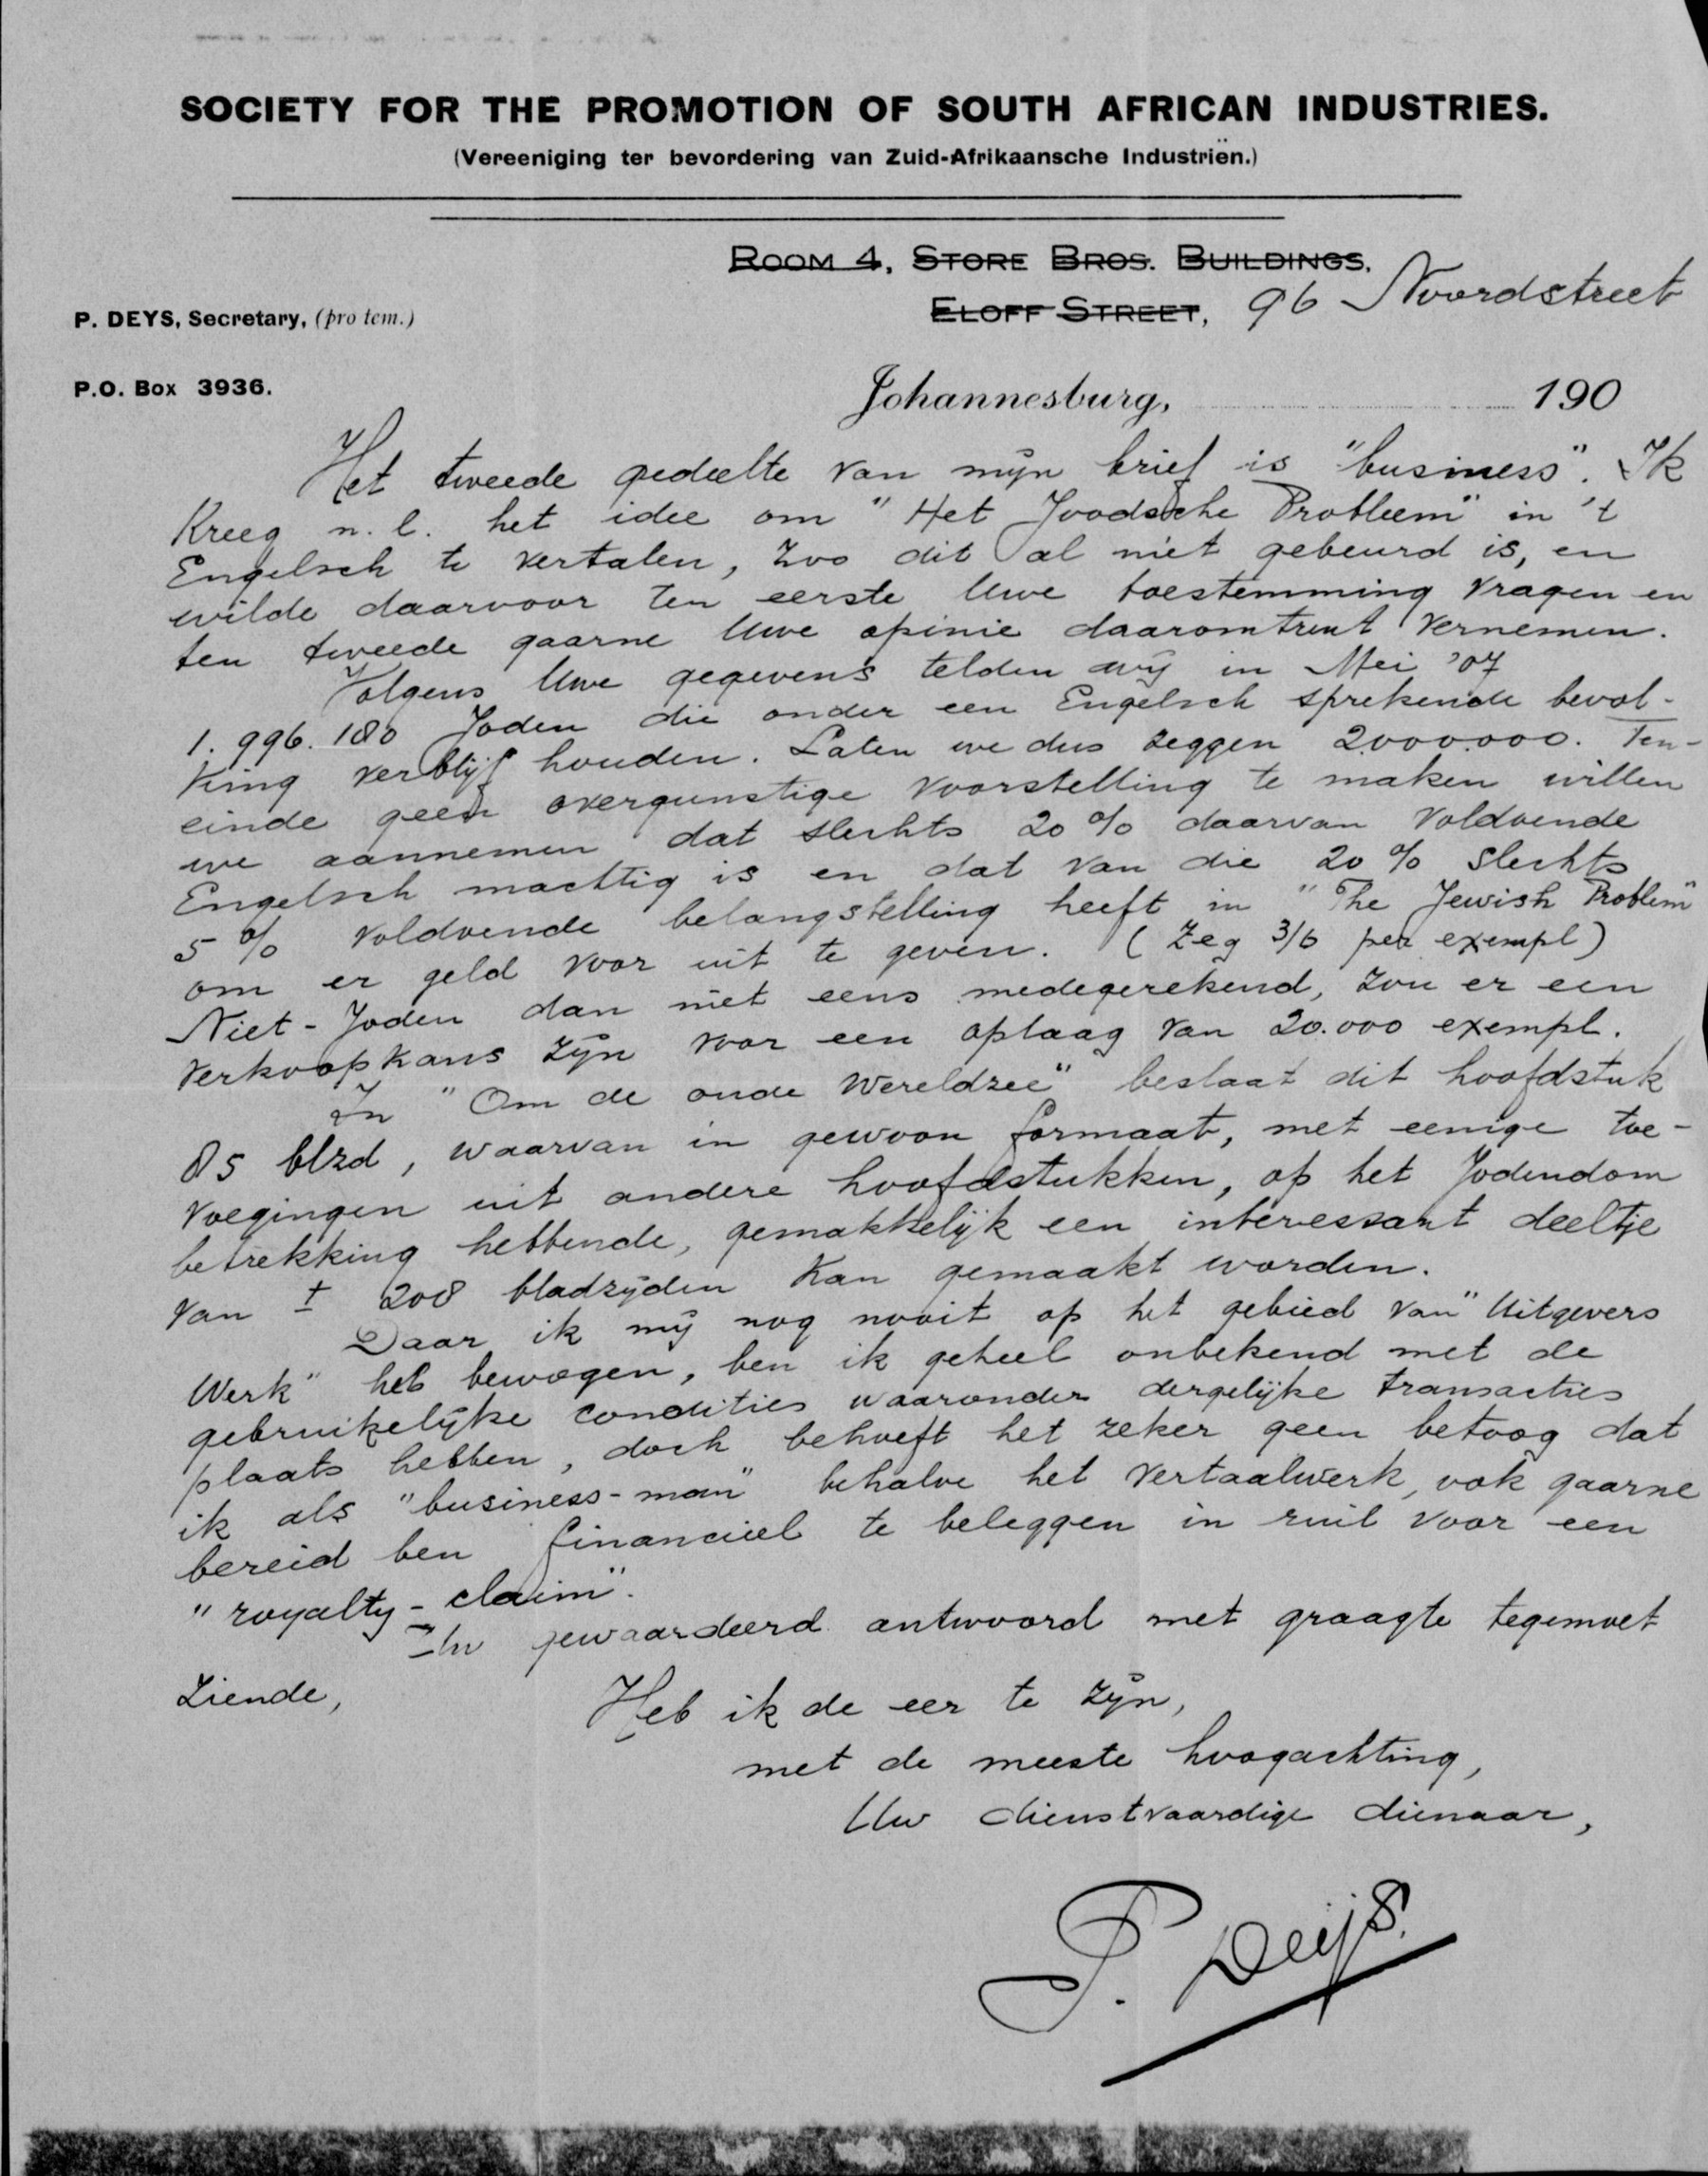 SOCIETY FOR THE PROMOTION OF SOUTH AFRICAN INDUSTRIES.
(Vereeniging ter bevordering van Zuid-Afrikaansche Industriën.)
ROOM 4, STORE BROS. BUILDINGS,
ELOFF STREET, 96 Noordstreet
P. DEYS, Secretary, (pro tem.)
P.O. Box 3936.
Johannesburg, 190
Het tweede gedeelte van mijn brief is "business". Ik
kreeg n.l. het idee om "Het Joodsche Probleem" in 't
Engelsch te vertalen, zoo dit al niet gebeurd is, en
wilde daarvoor ten eerste Uwe toestemming vragen en
ten tweede gaarne Uwe opinie daaromtrent vernemen.
Volgens Uwe gegevens telden wij in Mei '07
1.996.180 Joden die onder een Engelsch sprekende bevol-
king verblijf houden. Laten we dus zeggen 2.000.000. Ten-
einde geen overgunstige voorstelling te maken willen
we aannemen dat slechts 20% daarvan voldoende
Engelsch machtig is en dat van die 20% slechts
5% voldoende belangstelling heeft in "The Jewish Problem"
om er geld voor uit te geven. (Zeg 3/6 per exempl)
Niet-Joden dan niet eens medegerekend, zou er een
verkoopkans zijn voor een oplaag van 20.000 exempl.
In "Om de oude Wereldzee" beslaat dit hoofdstuk
85 blzd, waarvan in gewoon formaat, met eenige toe-
voegingen uit andere hoofdstukken, op het Jodendom
betrekking hebbende, gemakkelijk een interessant deeltje
van ± 208 bladzijden kan gemaakt worden.
Daar ik mij nog nooit op het gebied van "Uitgevers
Werk" heb bewogen, ben ik geheel onbekend met de
gebruikelijke condities waaronder dergelijke transacties
plaats hebben, doch behoeft het zeker geen betoog dat
ik als "business-man" behalve het vertaalwerk, ook gaarne
bereid ben financieel te beleggen in ruil voor een
"royalty-claim".
Uw gewaardeerd antwoord met graagte tegemoet
ziende,
Heb ik de eer te zijn,
met de meeste hoogachting,
Uw dienstvaardige dienaar,
P. Deijs.